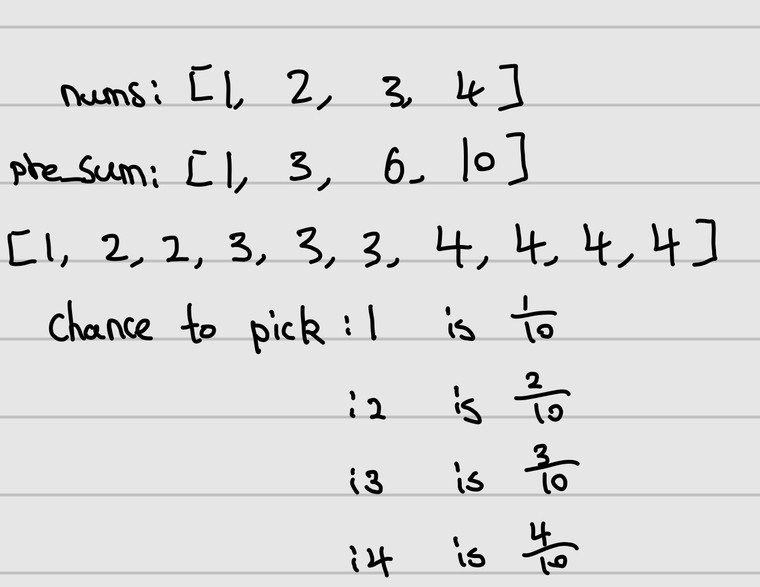 nums: [1, 2, 3, 4]
pre_sum: [1, 3, 6, 10]
[1, 2, 2, 3, 3, 3, 4, 4, 4, 4]
Chance to pick : 1 is 1/10
: 2 is 2/10
: 3 is 3/10
: 4 is 4/10